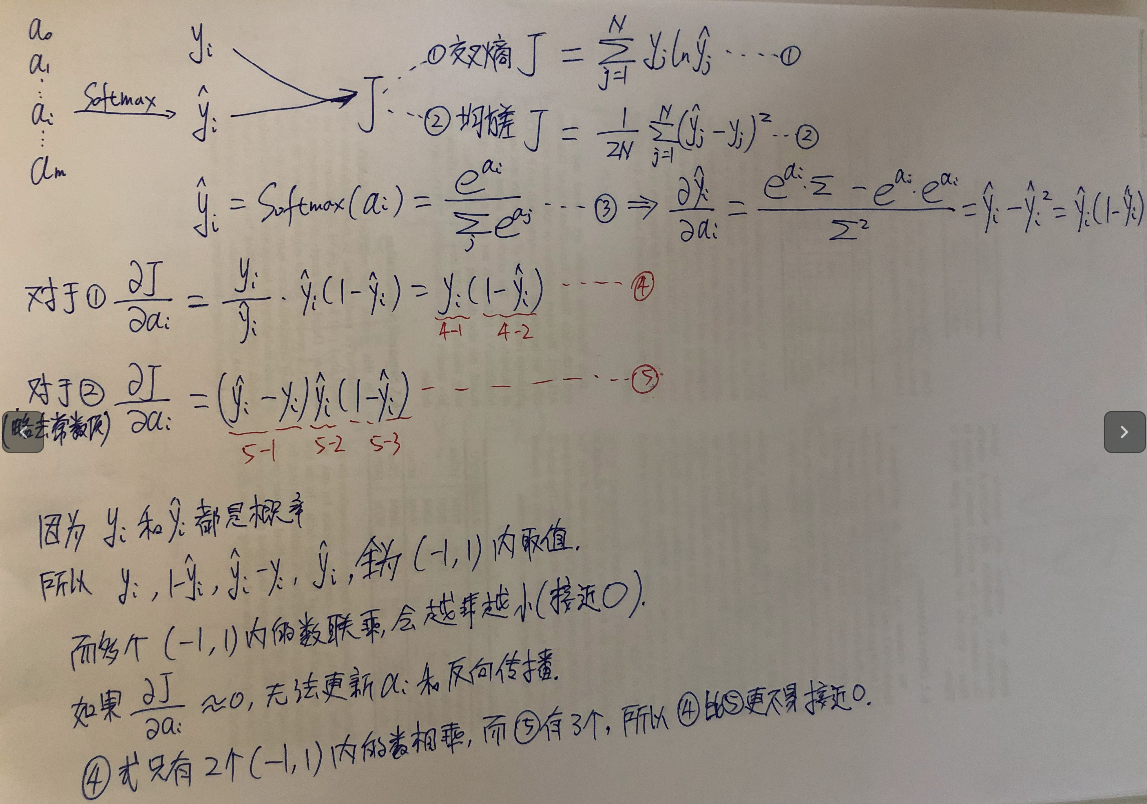 a₀
a₁
⋮
aᵢ
⋮
aₘ
Softmax
yᵢ
ŷᵢ
J
① 交叉熵 J = ∑_{j=1}^{N} yⱼ ln ŷⱼ ····· ①
② 均方差 J = 1/(2N) ∑_{j=1}^{N} (ŷⱼ - yⱼ)² ··· ②
ŷᵢ = Softmax(aᵢ) = e^{aᵢ} / ∑_j e^{aⱼ} ···· ③ ⇒ ∂ŷᵢ/∂aᵢ = (e^{aᵢ}·Σ - e^{aᵢ}·e^{aᵢ}) / Σ² = ŷᵢ - ŷᵢ² = ŷᵢ(1-ŷᵢ)
对于① ∂J/∂aᵢ = yᵢ/ŷᵢ · ŷᵢ(1-ŷᵢ) = yᵢ(1-ŷᵢ) ····· ④
4-1 4-2
对于② ∂J/∂aᵢ = (ŷᵢ - yᵢ)ŷᵢ(1-ŷᵢ) ----- ⑤
(略去常数项)
5-1 5-2 5-3
因为 yᵢ 和 ŷᵢ 都是概率
所以 yᵢ, 1-ŷᵢ, ŷᵢ-yᵢ, ŷᵢ, 全为 (-1, 1) 内取值.
而多个 (-1, 1) 内的数联乘, 会越乘越小(接近0).
如果 ∂J/∂aᵢ ≈0, 无法更新 aᵢ 和反向传播.
④式只有2个(-1, 1)内的数相乘, 而⑤有3个, 所以④比⑤更不易接近0.